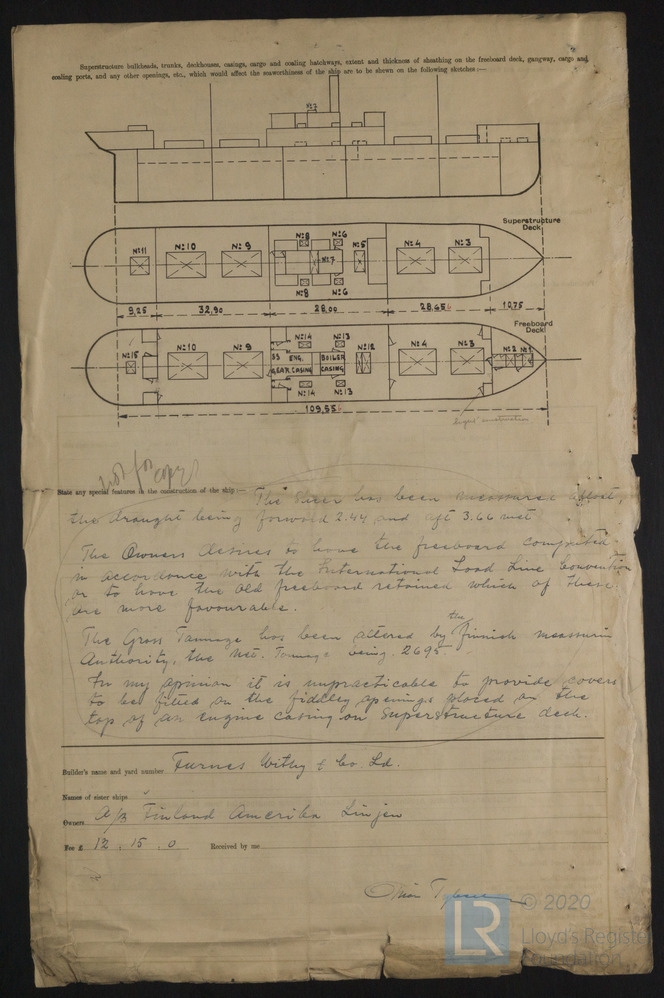 Superstructure bulkheads, trunks, deckhouses, casings, cargo and coaling hatchways, extent and thickness of sheathing on the freeboard deck, gangway, cargo and
coaling ports, and any other openings, etc., which would affect the seaworthiness of the ship are to be shewn on the following sketches:—
Nº7
Superstructure
Deck
Nº11 Nº10 Nº9 Nº8 Nº6 Nº7 Nº5 Nº4 Nº3
Nº8 Nº6
9,25 32,90 28,00 28,65 10,75
Freeboard
Deck
Nº15 Nº10 Nº9 Nº14 Nº13 Nº12 Nº4 Nº3 Nº2 Nº1
ENG. BOILER
GEAR CASING CASING
Nº14 Nº13
109,55
construction
not for
copy
State any special features in the construction of the ship:— The Sheer has been measured afloat,
the draught being forward 2.44 and aft 3.66 met
The Owners desires to have the freeboard computed
in accordance with the International Load Line Convention
or to have the old freeboard retained which of these
are more favourable.
The Gross Tannage has been altered by the Finnish measuring
Authority, the Net. Tannage being 2695
In my opinion it is unpracticable to provide covers
to be fitted on the fiddley openings placed on the
top of an engine casing on Superstructure deck.
Builder's name and yard number Furnes Withy & Co. Ld.
Names of sister ships
Owners A/B Finland Amerika Linjen
Fee £ 12 . 15 . 0 Received by me
LR © 2020
Lloyd's Register
Foundation